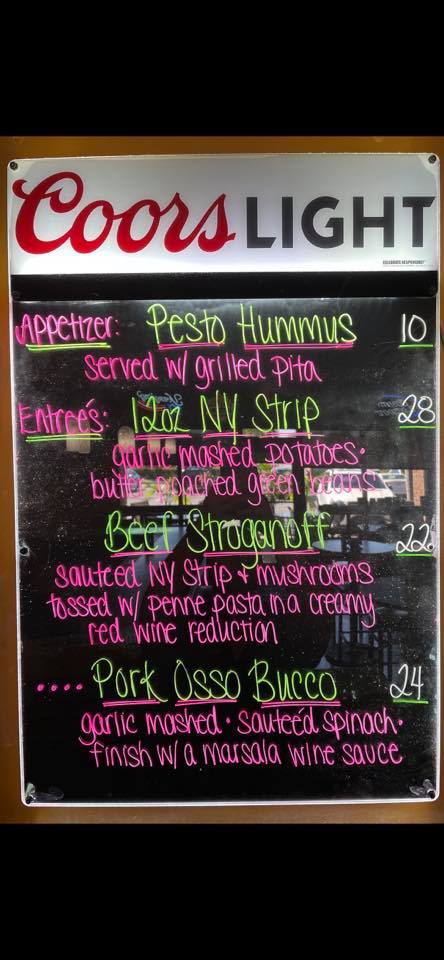 Coors LIGHT
CELEBRATE RESPONSIBLY
Appetizer: Pesto Hummus 10
served w/ grilled pita
Entreé's: 12oz NY Strip 28
garlic mashed potatoes •
butter poached green beans
Beef Stroganoff 22
sauteed NY Strip + mushrooms
tossed w/ penne pasta in a creamy
red wine reduction
.... Pork Osso Bucco 24
garlic mashed • sauteéd spinach •
finish w/ a marsala wine sauce